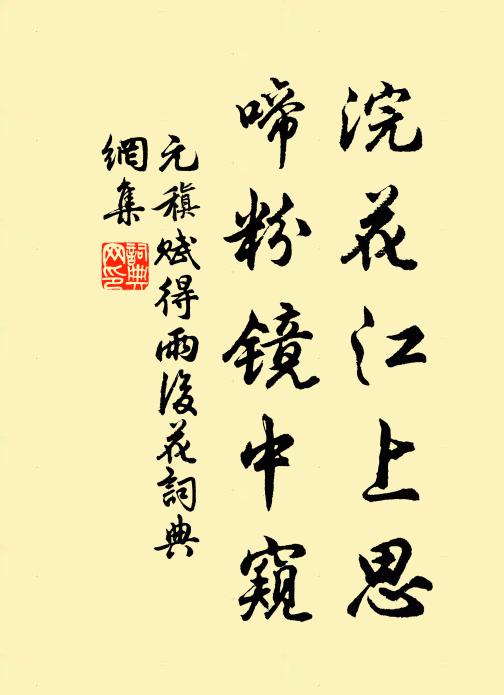 浣花江上思
啼粉镜中窥
元稹赋得雨后花詞典
網集
詞典
网印